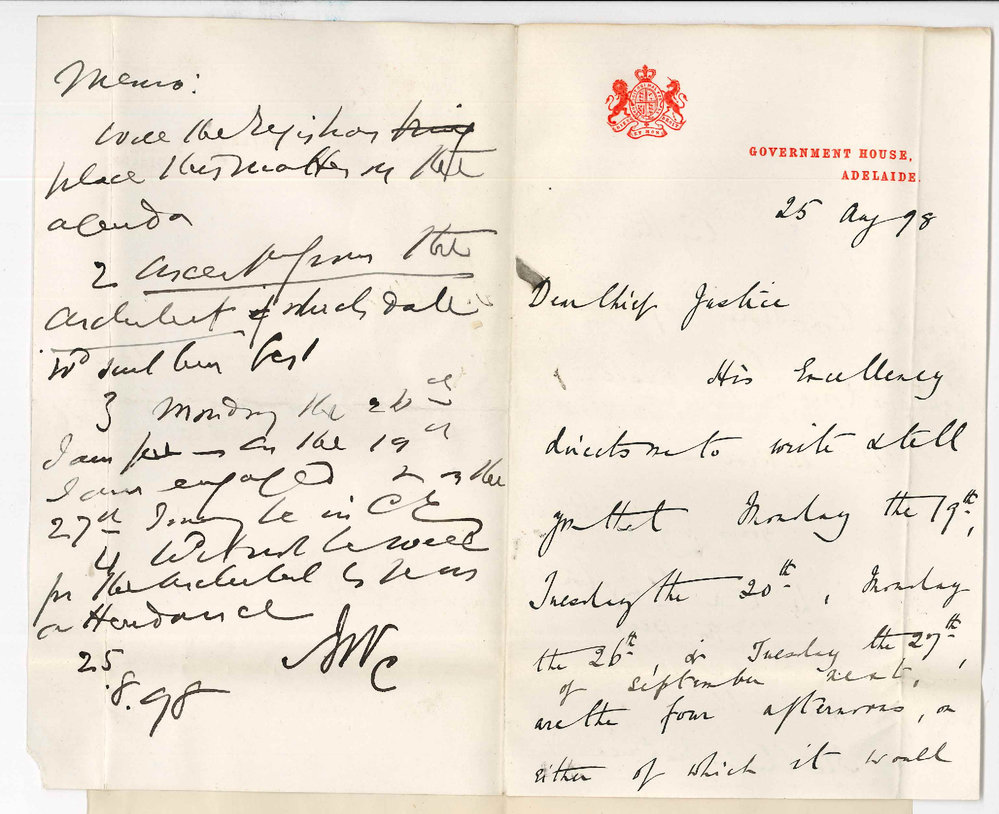 Memo:
Will the Registrar bring
place this matter on the
agenda
2 ascertn from the
architect which date
wd suit him best
3 Monday the 26th
I am free on the 19th
I am engaged & on the
27th I may be in CC
4 Wd it not be well
for the architect to be in
attendance
25
.8.98
GOVERNMENT HOUSE,
ADELAIDE.
25 Aug 98
Dear Chief Justice
His Excellency
directs me to write & tell
you that Monday the 19th,
Tuesday the 20th, Monday
the 26th, or Tuesday the 27th,
of September next,
are the four afternoons, on
either of which it would